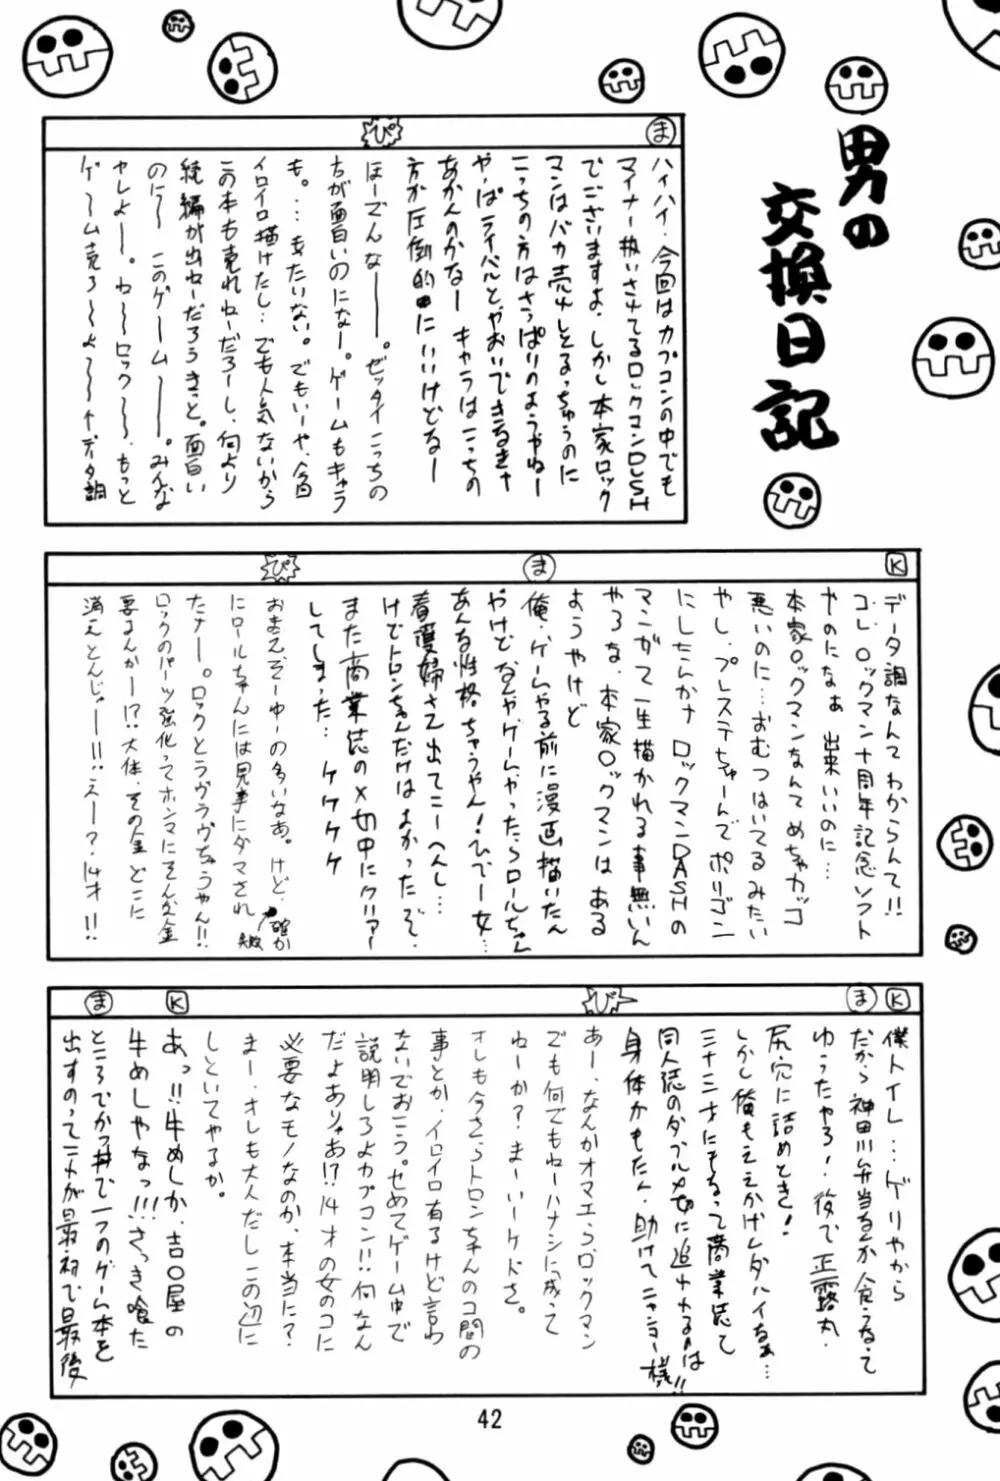 男の
交換日記
ま
ハイハイ、今回はカプコンの中でも
マイナー扱いされてるロックマンDASH
でございますよ。しかし本家ロック
マンはバカ売れしとるっちゅうのに
こっちの方はさっぱりのようやねー
やっぱライバルとやおいできるきャ
あかんのかなー キャラはこっちの
方が圧倒的にいいけどなー
ぴ
ほーでんなーー。ゼッタイこっちの
ちが面白いのになー。ゲームもキャラ
も。…もったいない。でもいーや、今回
イロイロ描けたし…でも人気ないから
この本も売れねーだろーし、何より
続編が出ねーだろうきっと。面白い
のに〜 このゲームーー。みんな
やれよー。ねーロック〜〜、もっと
ゲ〜〜ム売ろ〜〜よ〜〜〜データ調
K
データ調なんてわからんて!!
コレ、ロックマン十周年記念ソフト
やのになぁ 出来いいのに…
本家ロックマンなんてめちゃカッコ
悪いのに…おむつはいてるみたい
やし、プレステちゃーんでポリゴン
にしたらんかナ ロックマンDASHの
マンガて一生描かれる事無いん
やろな、本家ロックマンはある
ようやけど
ま
俺、ゲームやる前に漫画描いたん
やけどなんやゲームやったらロールちゃん
あんな性格ちゃうやん!ひでー女…
看護婦さん出てこーへんし…
けどトロンちゃんだけはよかったぞ。
また商業誌の〆切中にクリアー
してしまった… ケケケケ
ぴ
おまえそーゆーの多いなあ。けど、確か
にロールちゃんには見事にダマされ
たナー。ロックとラヴラヴちゃうやん!!
ロックのパーツ強化ってホンマにそんな金
要るんかー!?大体、その金どこに
消えとんじゃー!!えー?14才!!
K
僕トイレ…ゲリやから
ま
だから神田川弁当なんか食うなって
ゆったやろ!、後で正露丸、
尻穴に詰めとき!
しかし俺もええかげんダハイなぁ…
三十三才にもなって商業誌て
同人誌のダブル〆切に追われるのは!!
身体がもたん、助けてニャンコー様
ぴ
あー、なんかオマエらロックマン
でも何でもねーハナシに成って
ねーか?まーいーケドさ。
オレも今さらトロンちゃんのコ間の
事とか、イロイロ有るけど言わ
ないでおこう。せめてゲーム中で
説明しろよカプコン!!何なん
だよありゃあ!?14才の女のコに
必要なモノなのか、本当に?
まー、オレも大人だしこの辺に
しといてやるか。
K
あっ!!牛めしか、吉〇屋の
牛めしやなっ!!!さっき喰た
ま
ところでかつ丼で一つのゲーム本を
出すのってこれが最初で最後
42